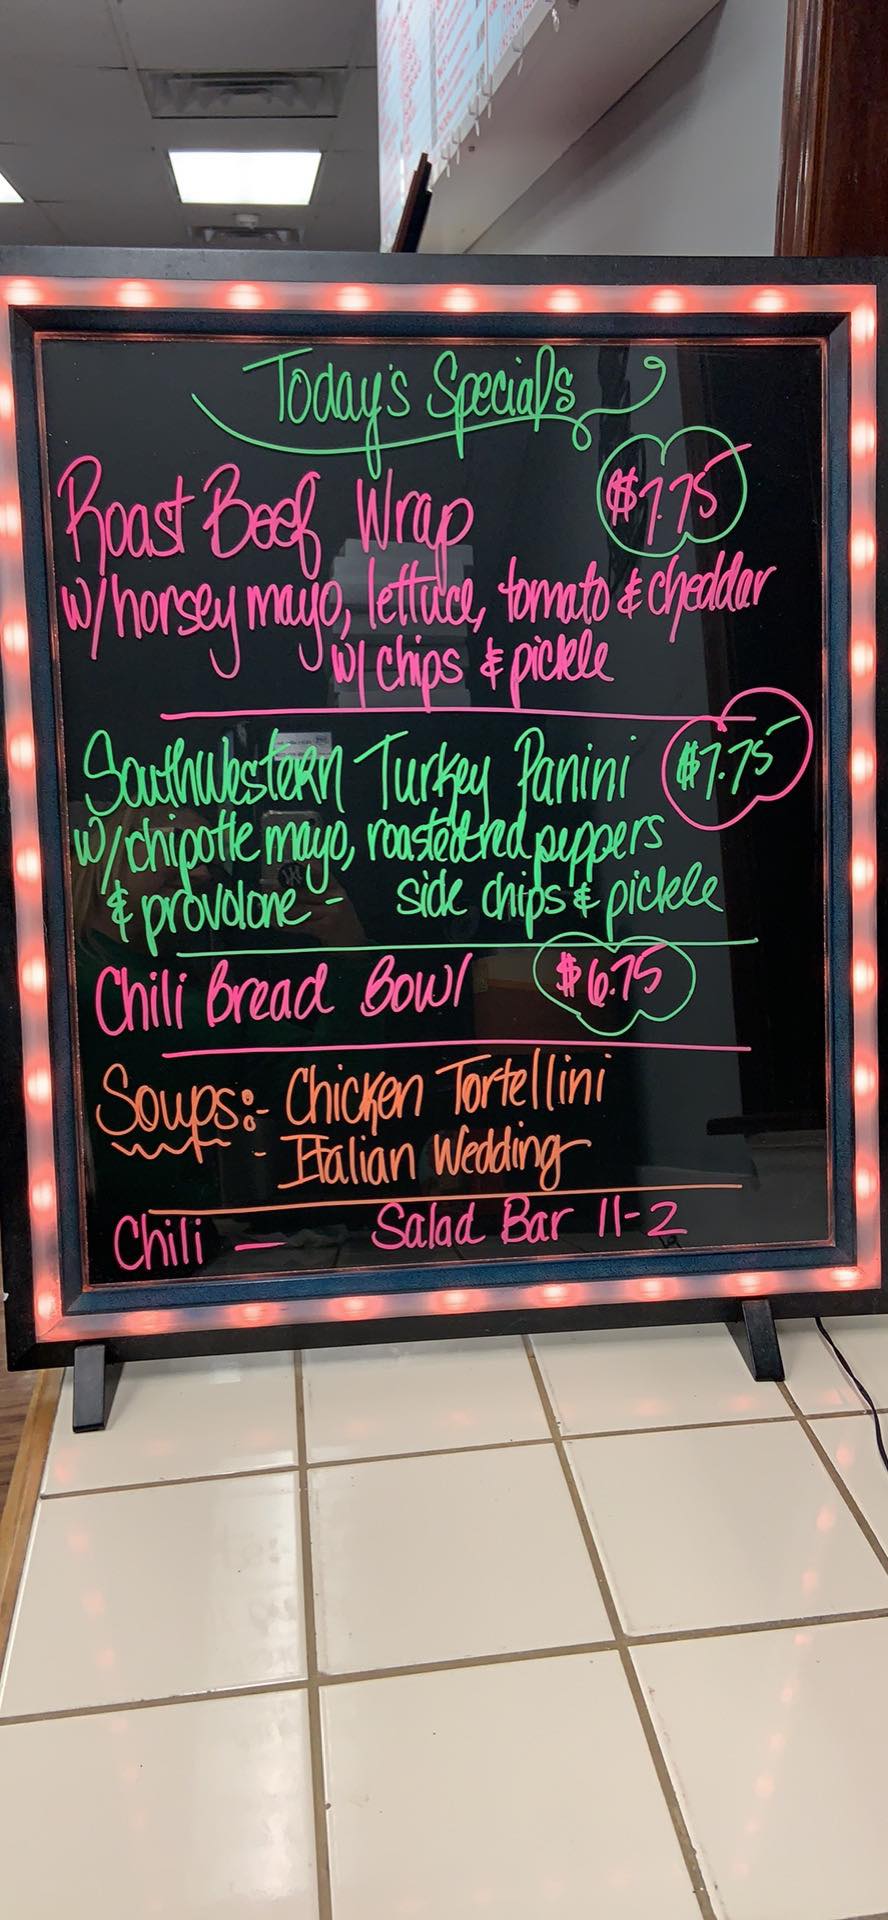 Today's Specials
Roast Beef Wrap $7.75
w/horsey mayo, lettuce, tomato & cheddar
w/ chips & pickle
Southwestern Turkey Panini $7.75
w/chipotle mayo, roasted red peppers
& provolone - side chips & pickle
Chili Bread Bowl $6.75
Soups:- Chicken Tortellini
- Italian Wedding
Chili — Salad Bar 11-2